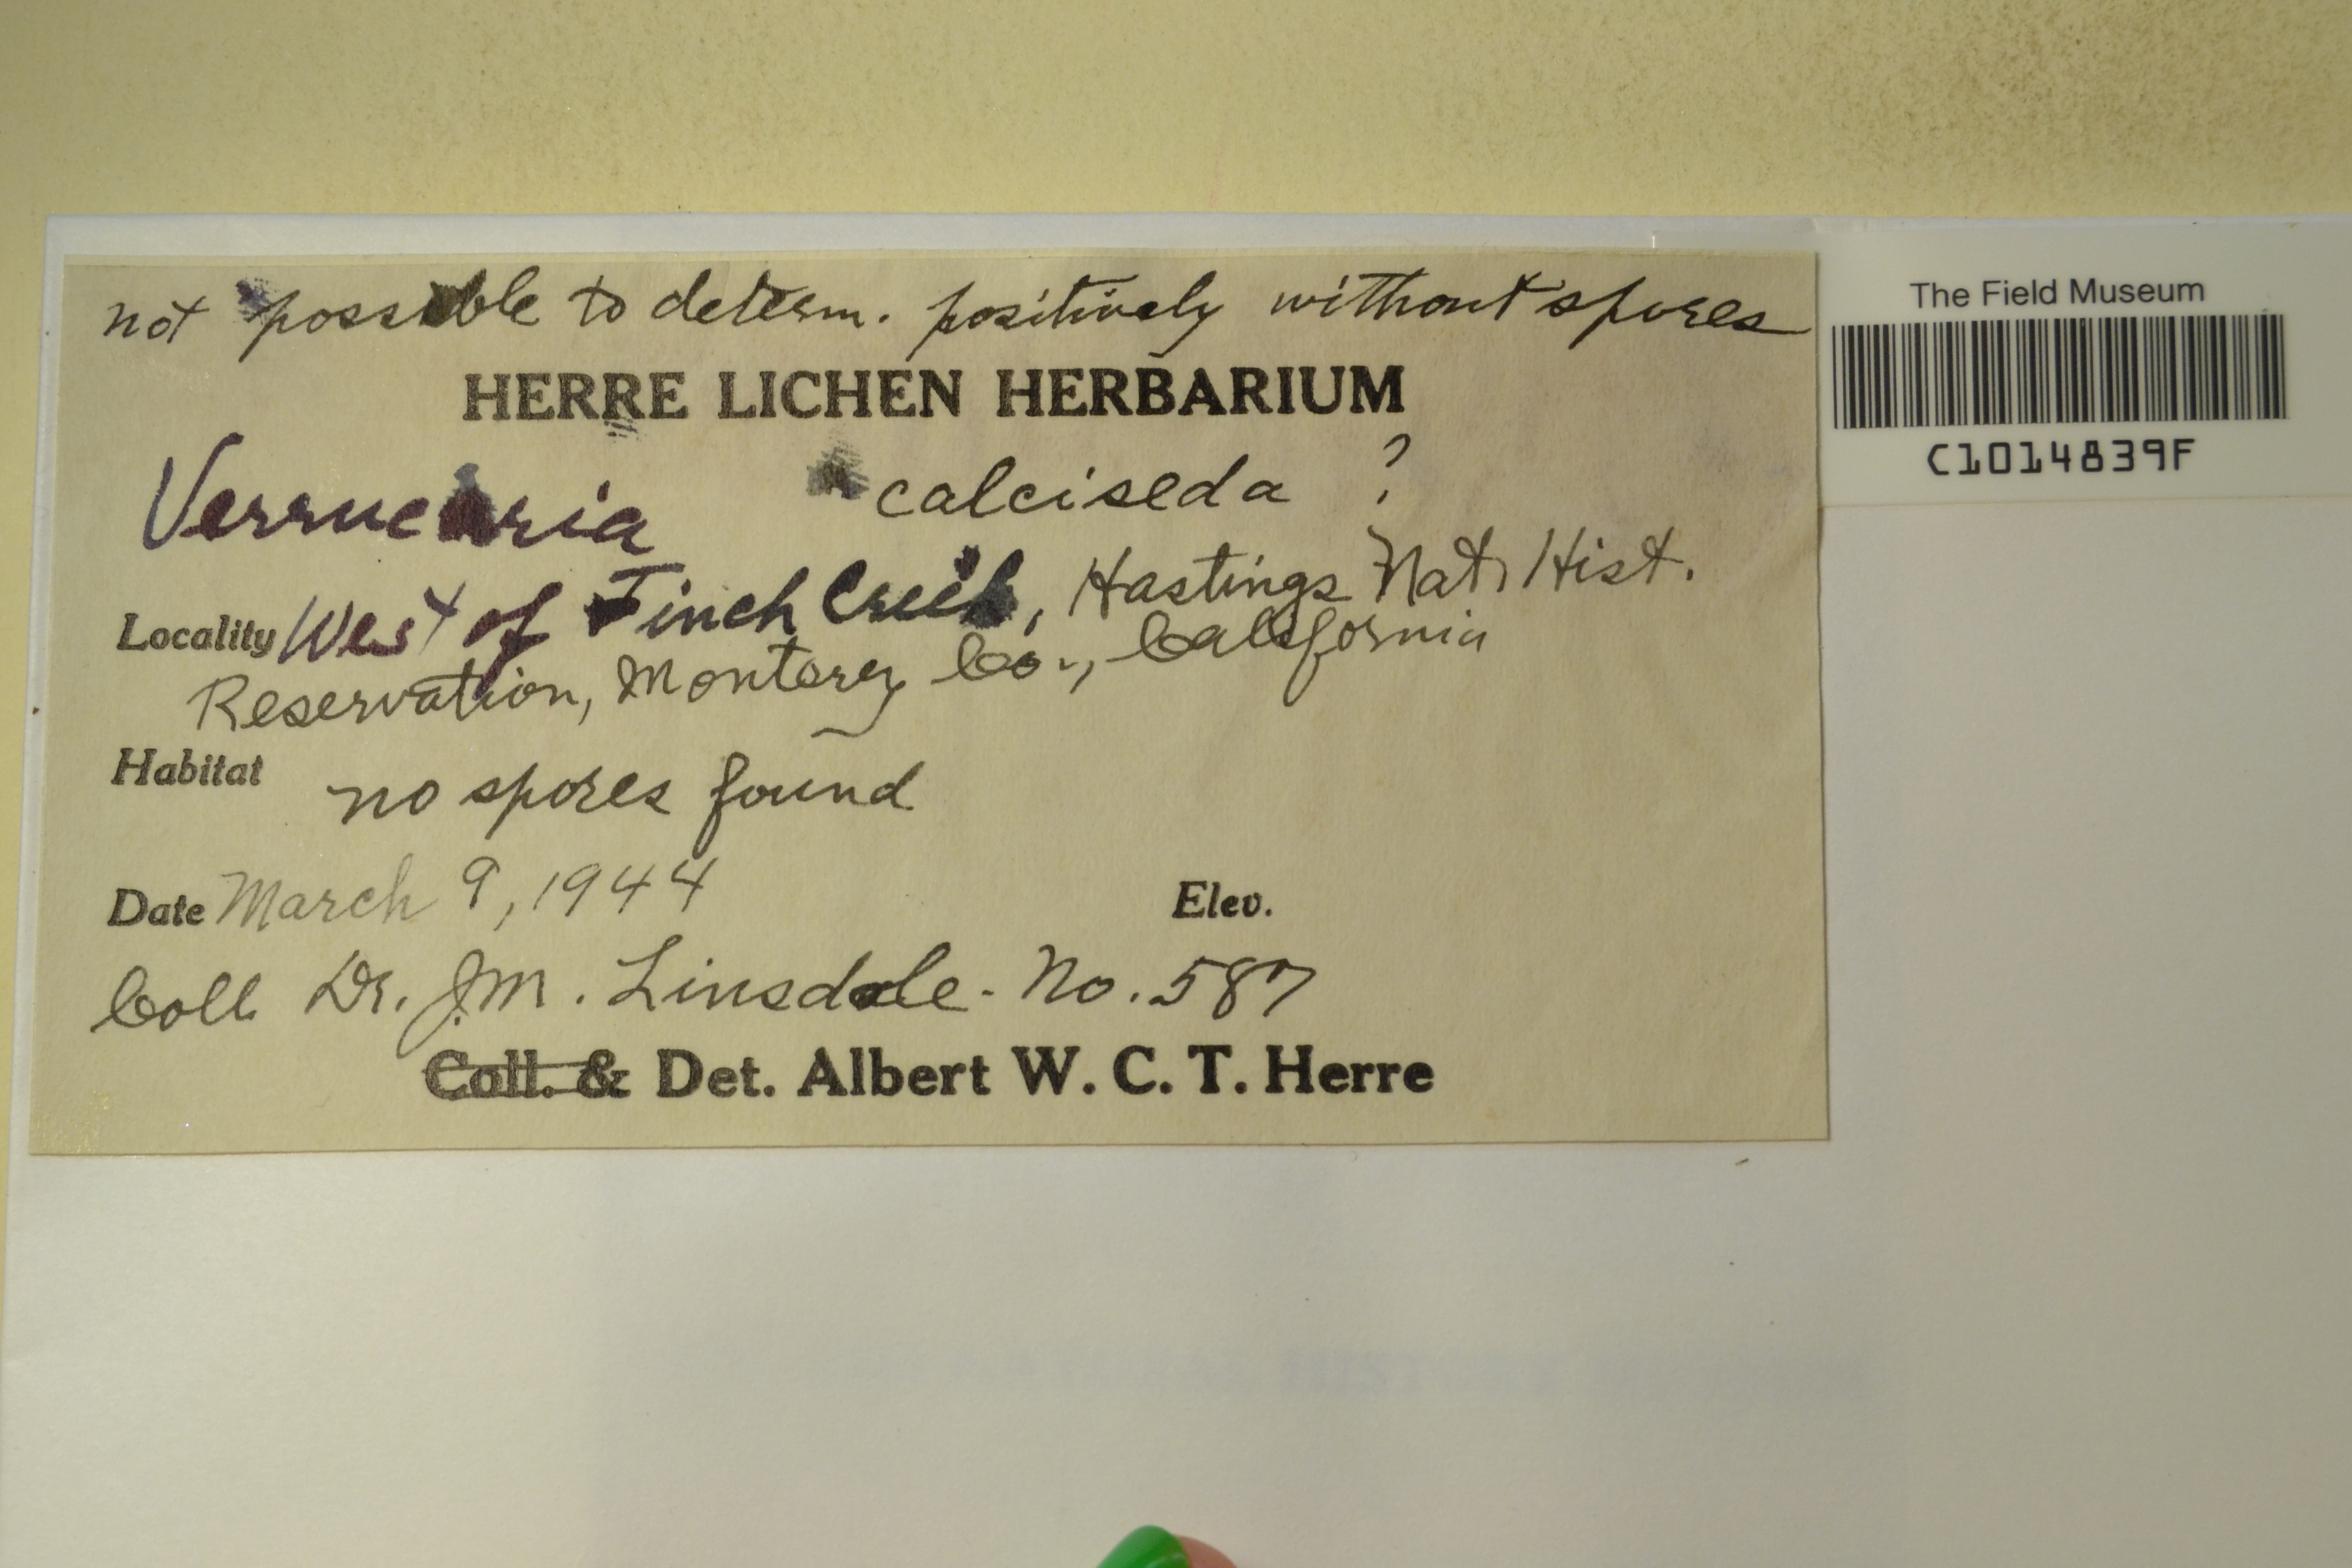 not possible to determ. positively without spores
HERRE LICHEN HERBARIUM
Verrucaria calciseda ?
Locality West of Finch Creek, Hastings Nat. Hist.
Reservation, Monterey Co., California
Habitat no spores found
Date March 9, 1944 Elev.
Coll. Dr. J.M. Linsdale - No. 587
Coll. & Det. Albert W. C. T. Herre
The Field Museum
C1014839F